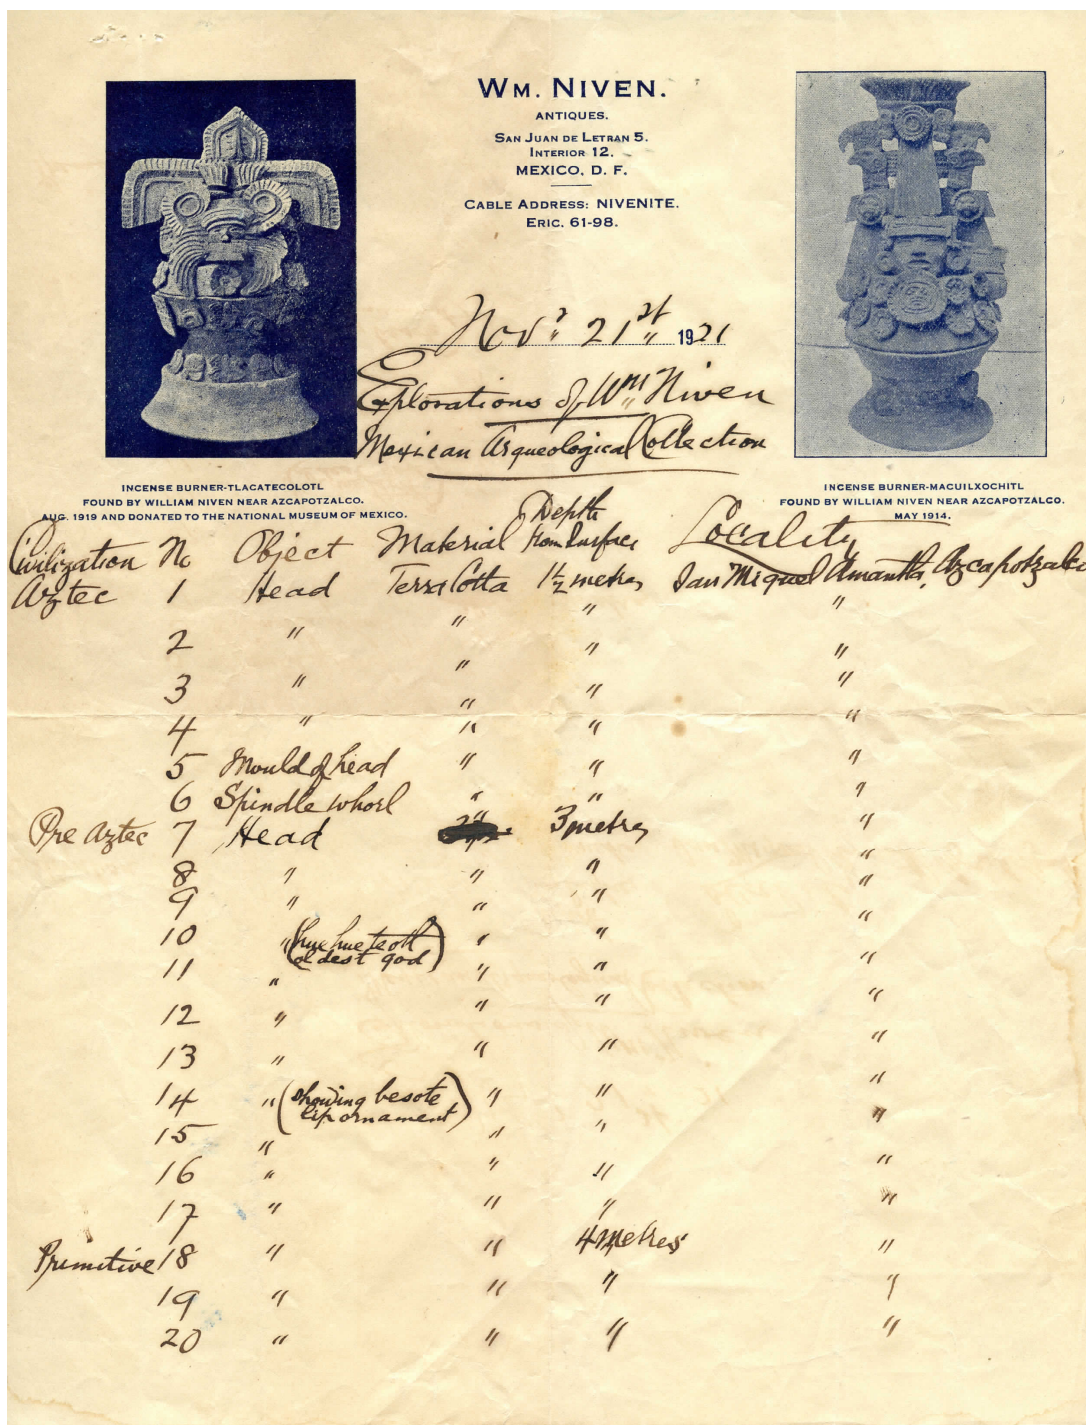 WM. NIVEN.
ANTIQUES.
SAN JUAN DE LETRAN 5.
INTERIOR 12.
MEXICO, D. F.
CABLE ADDRESS: NIVENITE.
ERIC. 61-98.
Novr 21st 1921
Explorations of Wm Niven
Mexican Arqueological Collection
INCENSE BURNER-TLACATECOLOTL
FOUND BY WILLIAM NIVEN NEAR AZCAPOTZALCO.
AUG. 1919 AND DONATED TO THE NATIONAL MUSEUM OF MEXICO.
INCENSE BURNER-MACUILXOCHITL
FOUND BY WILLIAM NIVEN NEAR AZCAPOTZALCO.
MAY 1914.
Civilization No Object Material Depth from Surface Locality
Aztec 1 Head Terra Cotta 1 1/2 metres San Miguel Amantla, Azcapotzalco
2 " " " "
3 " " " "
4 " " " "
5 Mould of head " " "
6 Spindle whorl " " "
Pre Aztec 7 Head " 3 metres "
8 " " " "
9 " " " "
10 " (huehueteotl oldest god) " " "
11 " " " "
12 " " " "
13 " " " "
14 " (showing besote lip ornament) " " "
15 " " " "
16 " " " "
17 " " " "
Primitive 18 " " 4 metres "
19 " " " "
20 " " " "